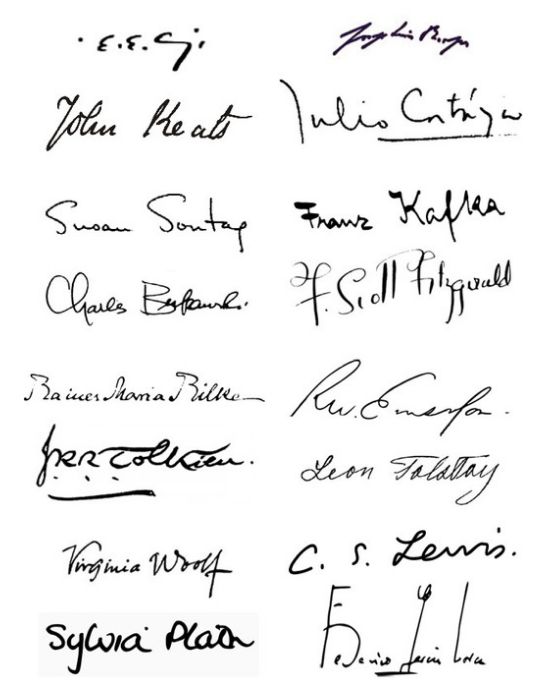 E.E.C
Jorge Luis Borges
John Keats
Julio Cortázar
Susan Sontag
Franz Kafka
Charles Bukowski.
F. Scott Fitzgerald
Rainer Maria Rilke
R.W. Emerson.
JRR Tolkien.
Leon Tolstoy
Virginia Woolf
C. S. Lewis.
Sylvia Plath
Federico García Lorca